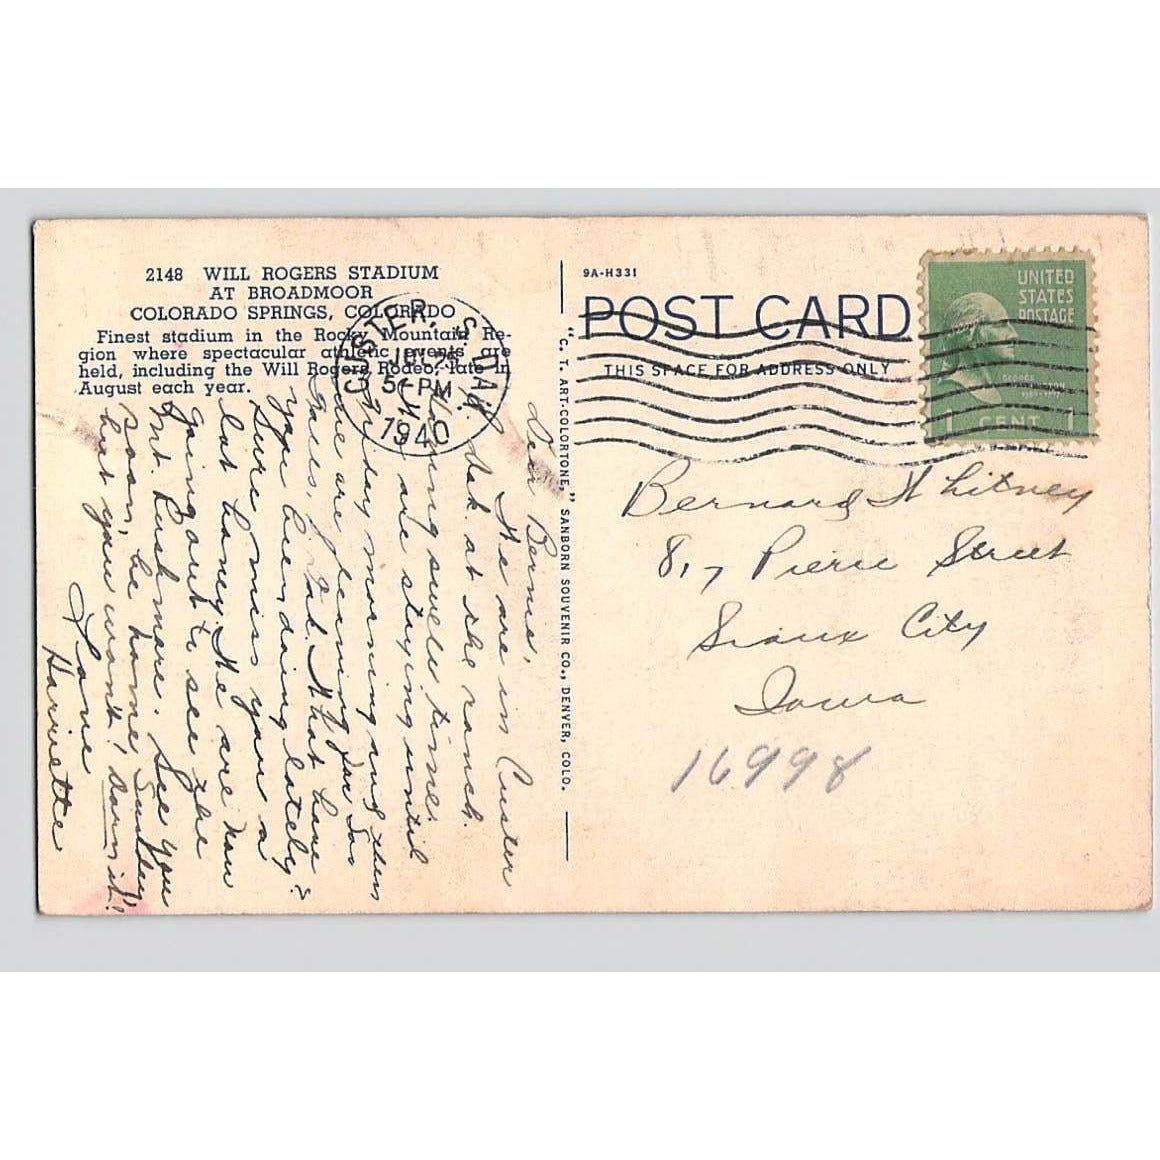 2148 WILL ROGERS STADIUM
AT BROADMOOR
COLORADO SPRINGS, COLORADO
Finest stadium in the Rocky Mountain Re-
gion where spectacular athletic events are
held, including the Will Rogers Rodeo, late in
August each year.
CUSTER, S. DAK.
JUL 25
5 PM
1940
Dear Bernie,
We are in Custer
S. Dak. at the ranch.
Having swell time.
We are staying until
Friday morning and then
we are leaving for
guess, Grad. What have
you been doing lately?
Sure miss you a
lot honey. We are now
going out to see the
Mt. Rushmore. See you
soon, be home Sunday
but you won't! Darn it!
Love
Harriette
9A-H331
"C. T. ART-COLORTONE," SANBORN SOUVENIR CO., DENVER, COLO.
POST CARD
THIS SPACE FOR ADDRESS ONLY
UNITED
STATES
POSTAGE
GEORGE
WASHINGTON
1789-1797
1 CENT 1
Bernard Whitney
817 Pierce Street
Sioux City
Iowa
16998